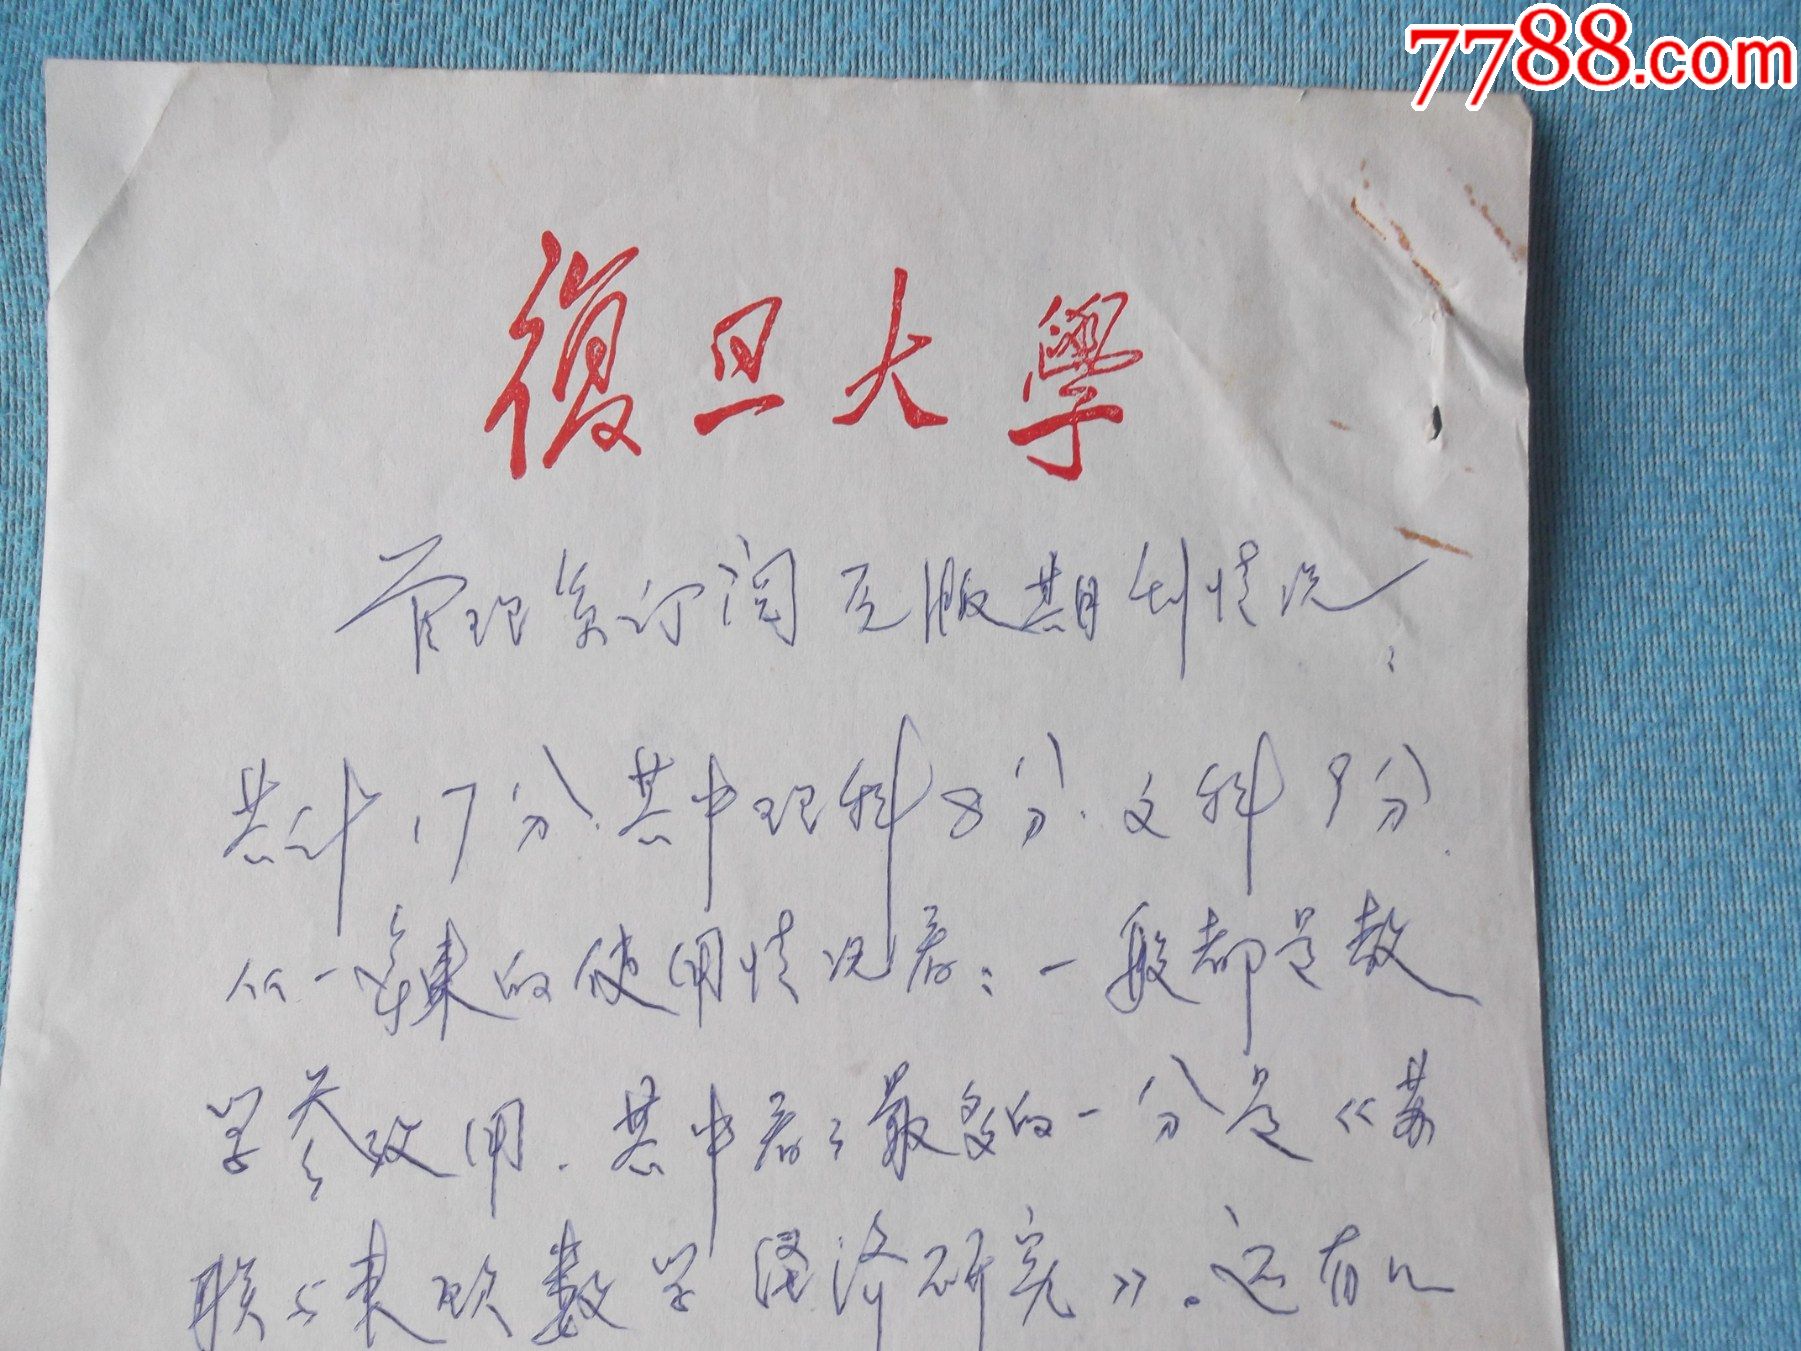 7788.com
復旦大學
管理系订阅原版期刊情况:
共计17份.其中理科8份.文科9份.
从一年来的使用情况看:一般都是教
学参考用.其中看最多的一份是《苏
联与东欧数学经济研究》。还有几